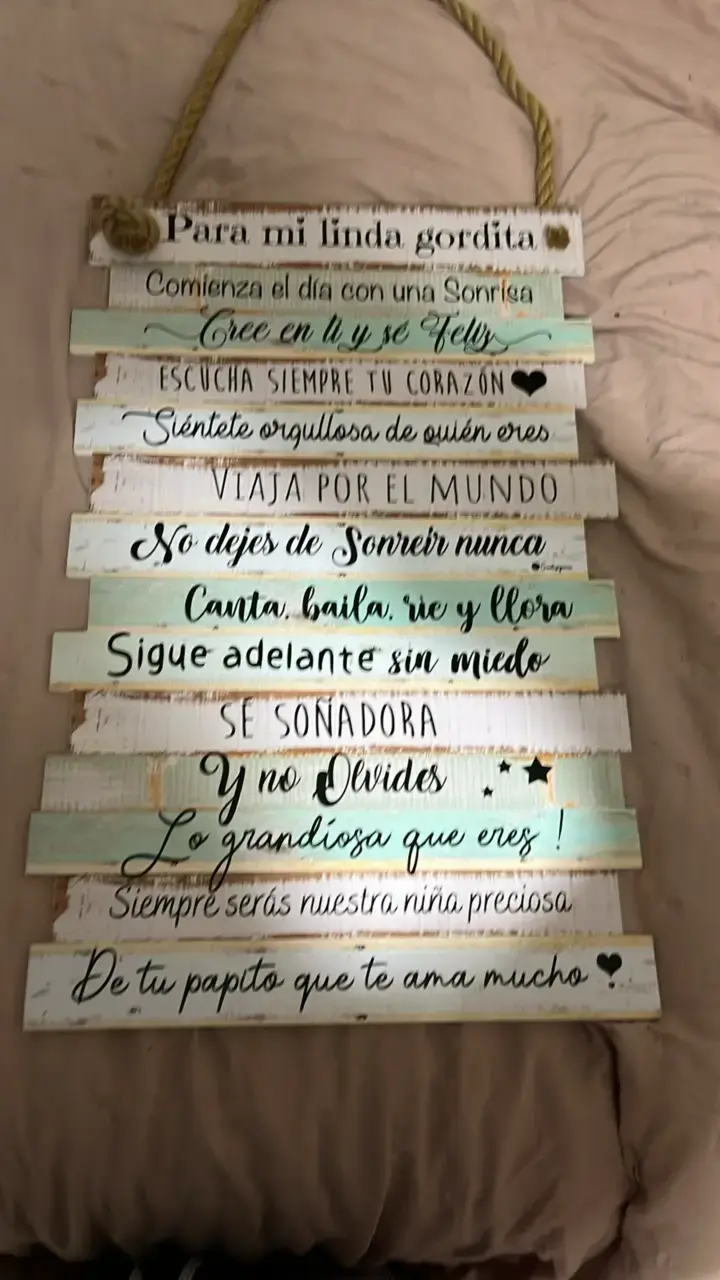 Para mi linda gordita
Comienza el día con una Sonrisa
Cree en ti y sé Feliz
ESCUCHA SIEMPRE TU CORAZÓN
Siéntete orgullosa de quién eres
VIAJA POR EL MUNDO
No dejes de Sonreir nunca
Canta, baila, rie y llora
Sigue adelante sin miedo
SÉ SOÑADORA
Y no Olvides
Lo grandiosa que eres !
Siempre serás nuestra niña preciosa
De tu papito que te ama mucho